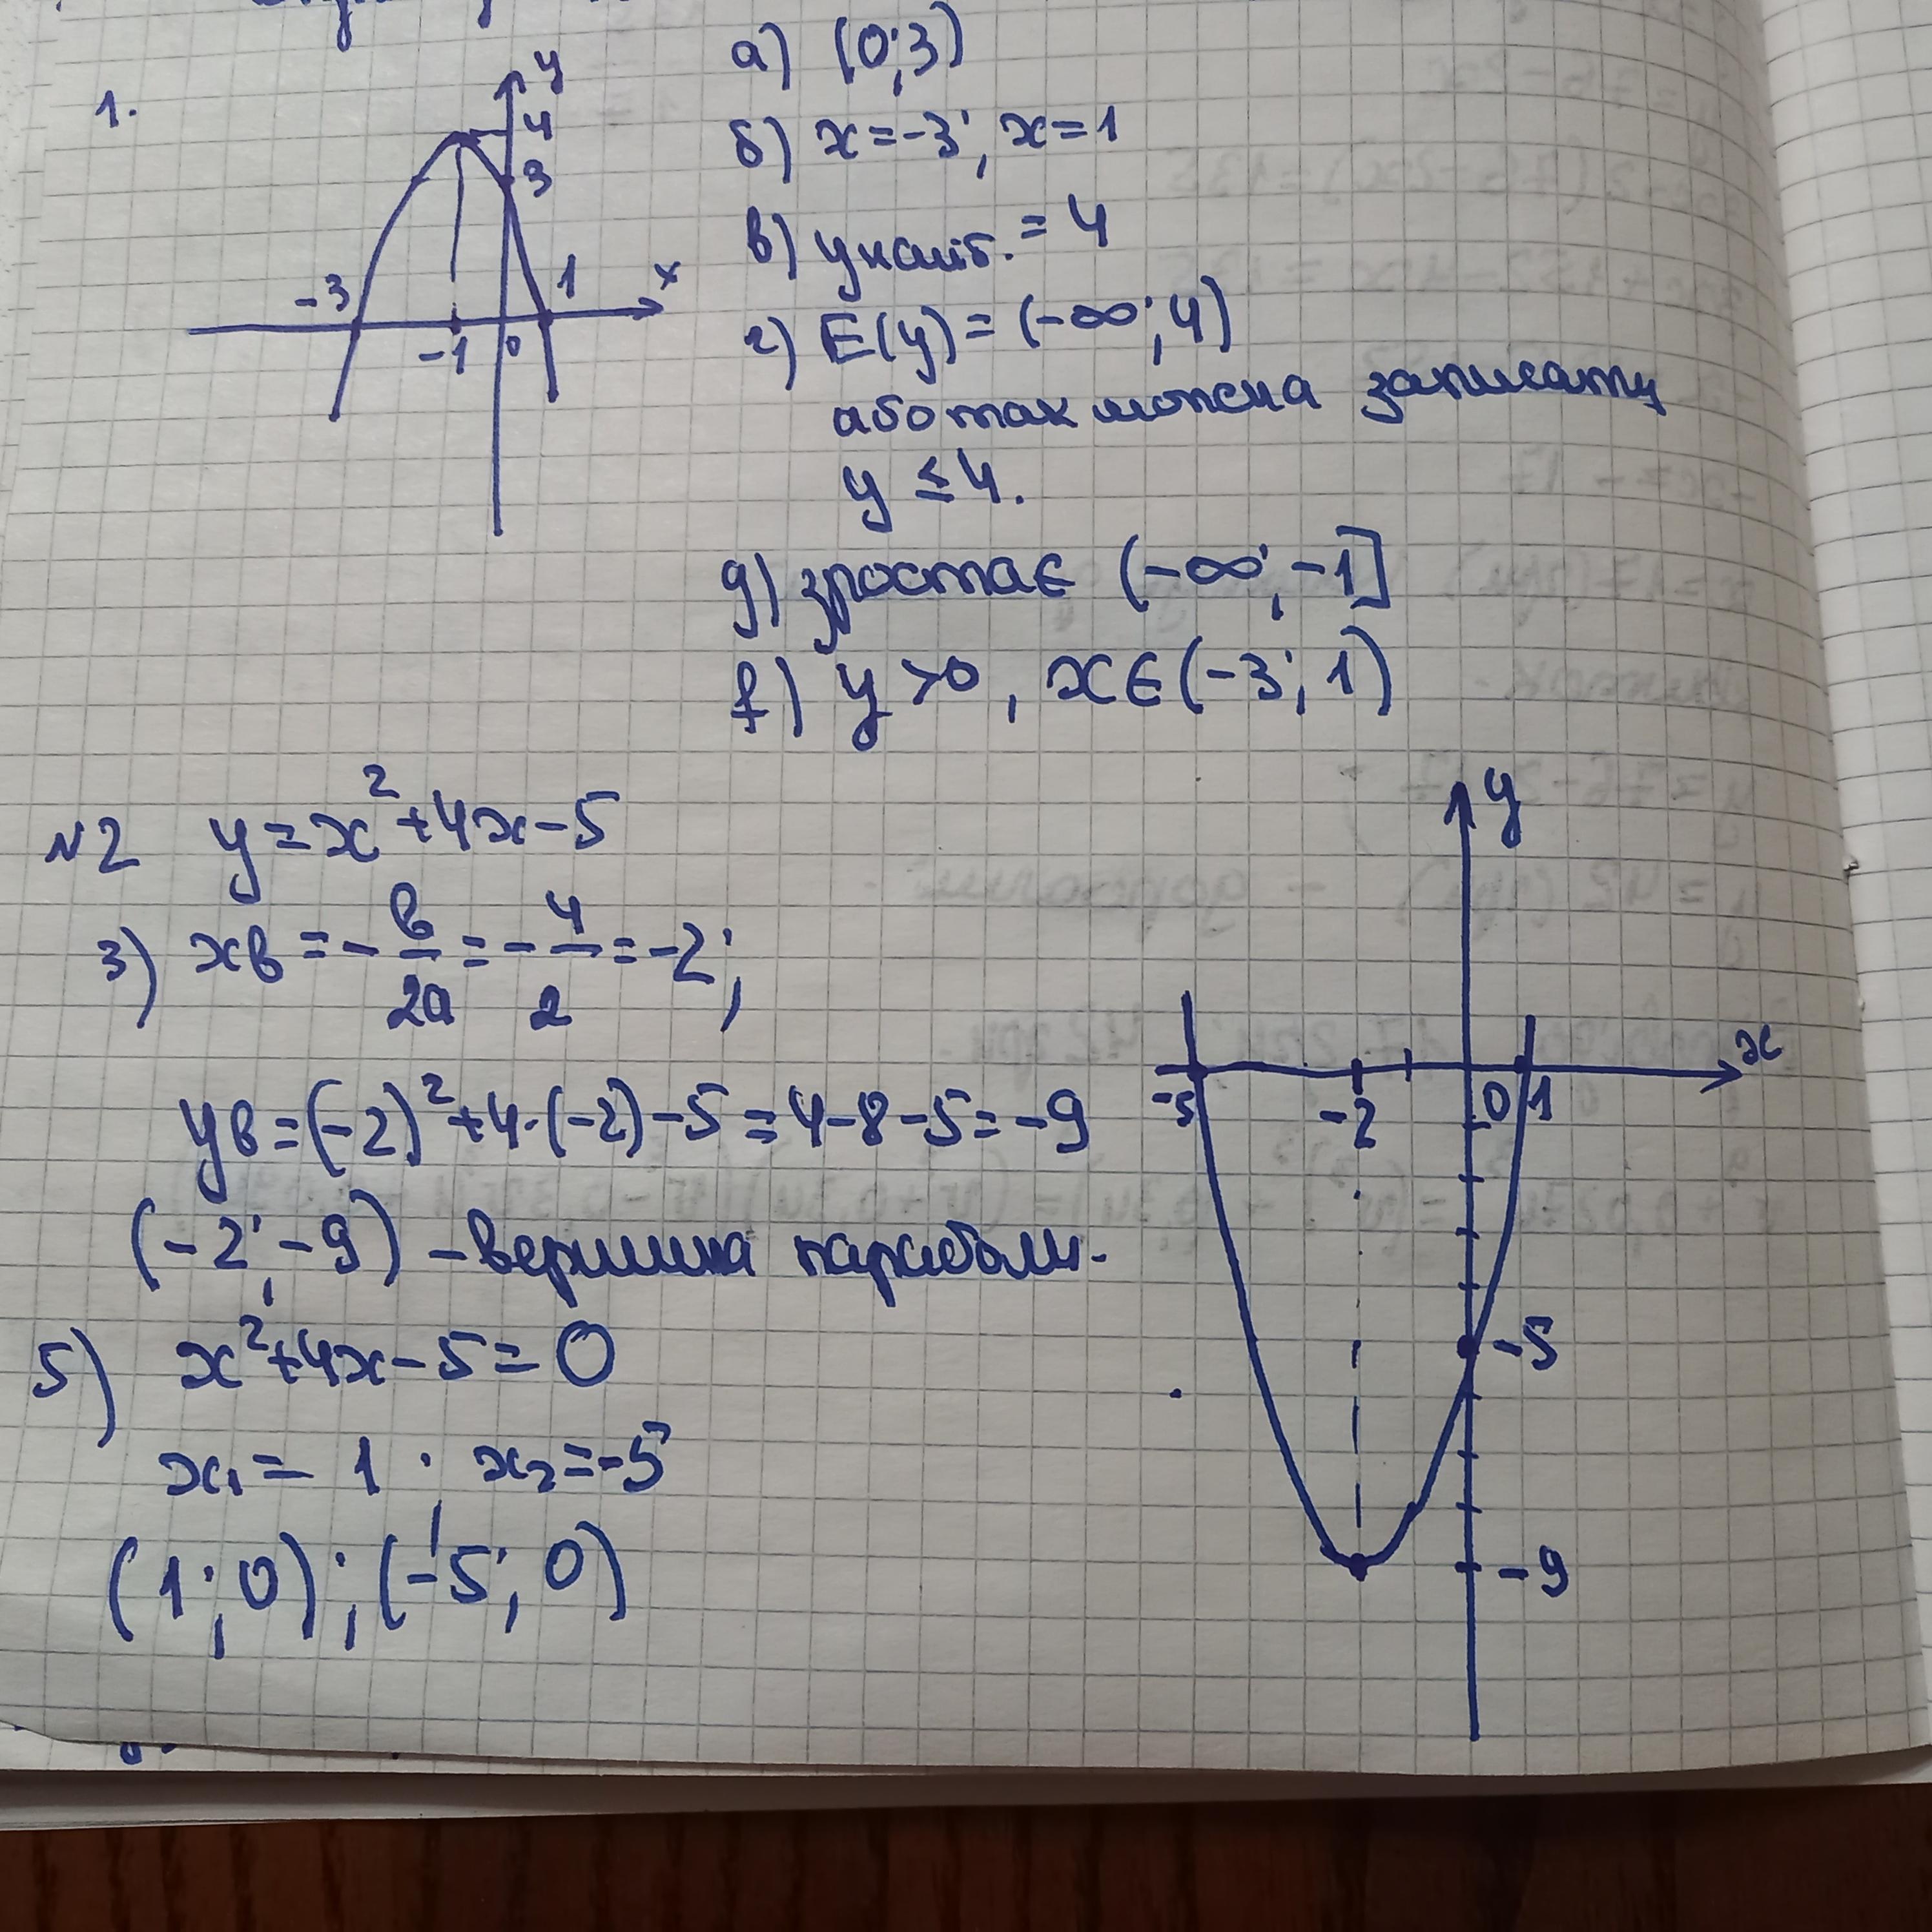 1.
y
4
3
-3
1
x
-1
0
а) (0;3)
б) x=-3; x=1
в) yнайб. = 4
г) E(y)=(-∞;4)
або так можна записати
y ≤ 4.
д) зростає (-∞; -1]
f) y >0, x∈(-3; 1)
№2 y=x²+4x-5
3) xв = -в/2a = -4/2 = -2;
yв=(-2)²+4·(-2)-5=4-8-5=-9
(-2; -9) - вершина параболи.
5) x²+4x-5=0
x₁= 1 ; x₂=-5
(1;0); (-5; 0)
y
x
-5
-2
0
1
-5
-9